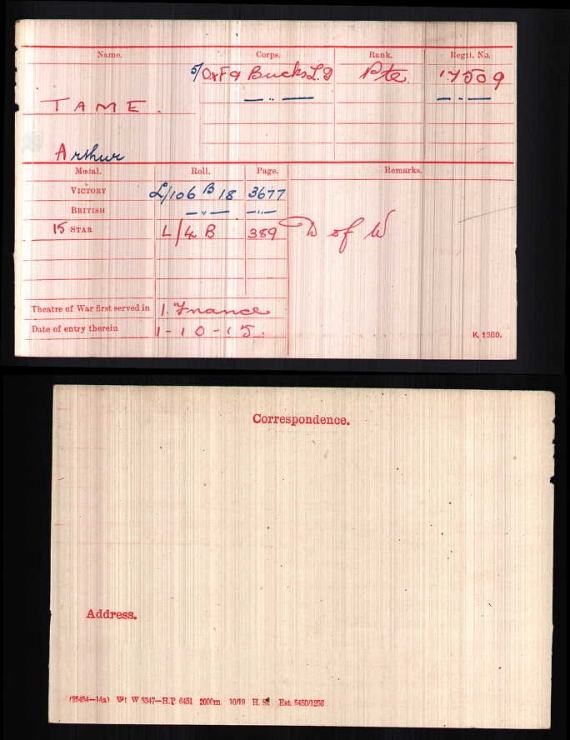 Name. Corps. Rank. Regtl. No.
5/Oxf & Bucks L.I Pte 17509
TAME. — " — — " —
Arthur
Medal. Roll. Page. Remarks.
VICTORY L/106 B 18 3677
BRITISH — " — — " —
15 STAR L/4 B 389 D of W
Theatre of War first served in 1. France
Date of entry therein 1-10-15.
K. 1380.
Correspondence.
Address.
(35454—14a) Wt W 5347—H.P. 6451 2000m 10/19 H. St. Est. 5450/1250